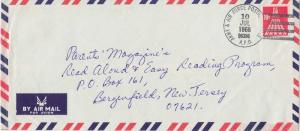 ARMY & AIR FORCE POSTAL
10
JUL
1968
A.P.O.
10c
Parents' Magazine's
Read Aloud & Easy Reading Program,
P.O. Box 161,
Bergenfield, New Jersey
07621.
BY AIR MAIL
PAR AVION